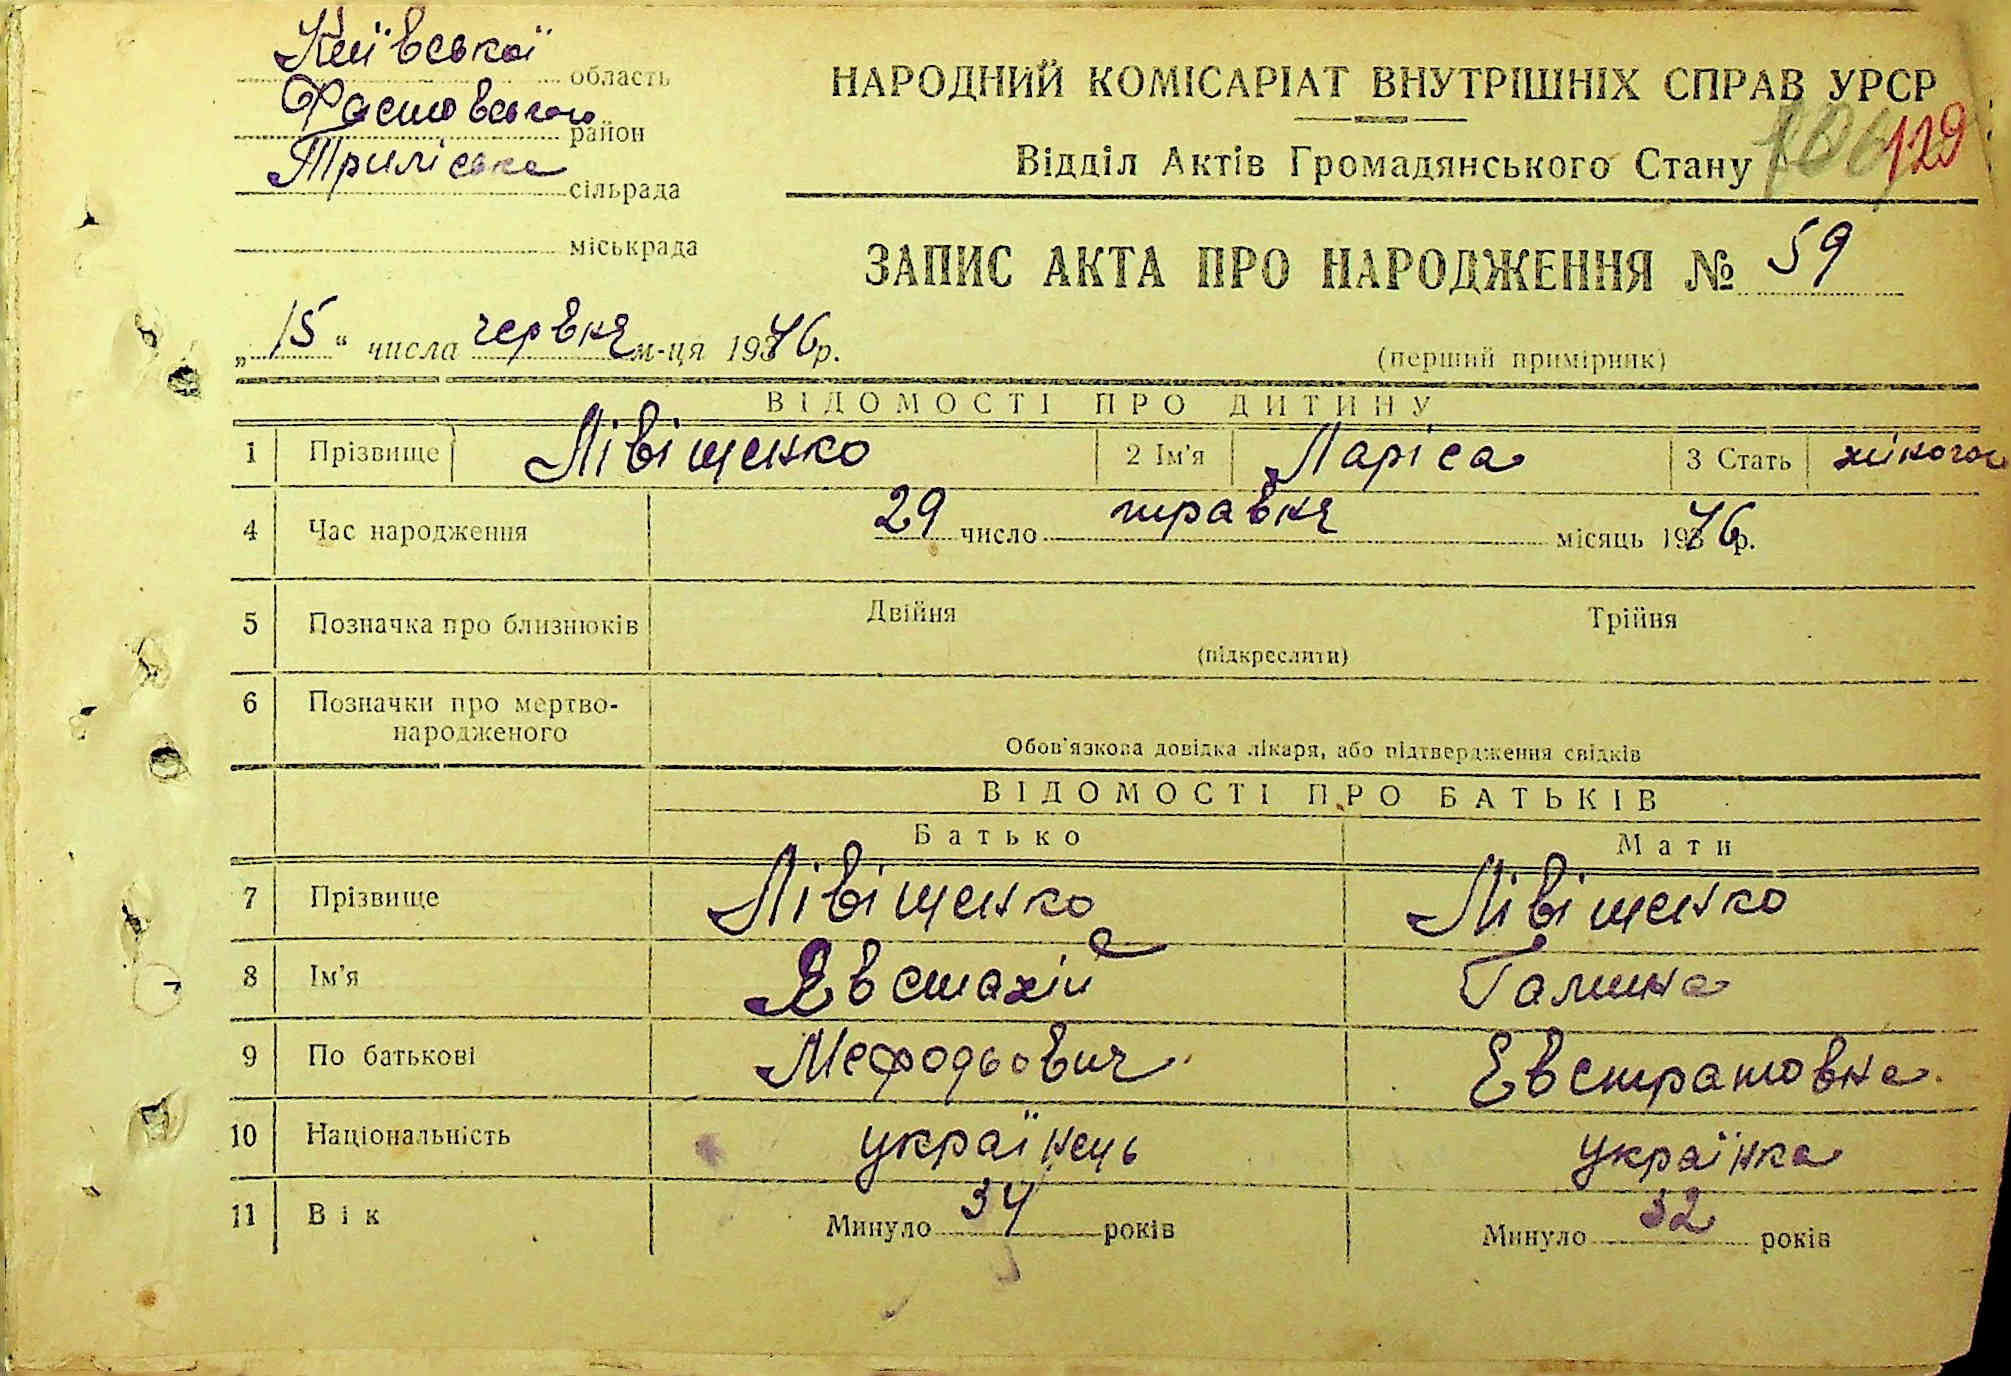 Київської область
Фастовського район
Триліська сільрада
міськрада
НАРОДНИЙ КОМІСАРІАТ ВНУТРІШНІХ СПРАВ УРСР
Відділ Актів Громадянського Стану
106 129
ЗАПИС АКТА ПРО НАРОДЖЕННЯ № 59
„15“ числа червня м-ця 1946р.
(перший примірник)
ВІДОМОСТІ ПРО ДИТИНУ
1 Прізвище Лівіщенко 2 Ім'я Ларіса 3 Стать
4 Час народження 29 число травня місяць 1946р.
5 Позначка про близнюків Двійня Трійня
(підкреслити)
6 Позначки про мертво-
народженого
Обов'язкова довідка лікаря, або підтвердження свідків
ВІДОМОСТІ ПРО БАТЬКІВ
Батько Мати
7 Прізвище Лівіщенко Лівіщенко
8 Ім'я Євстахій Галина
9 По батькові Мефодьович Евстратовна
10 Національність українець українка
11 Вік Минуло 34 років Минуло 32 років